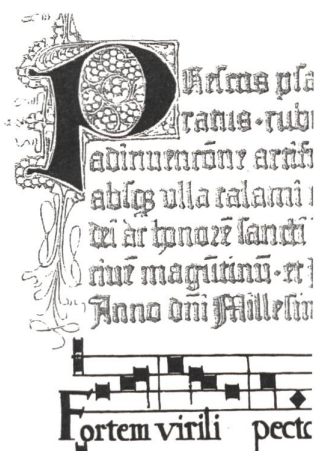 PResens psa
ratus·rubr
adinuencōne artifi
absqꝫ ulla calami
dei ac honorē sancti
ciuē magūtinū·et
Anno dñi Millesim
Fortem virili pecto